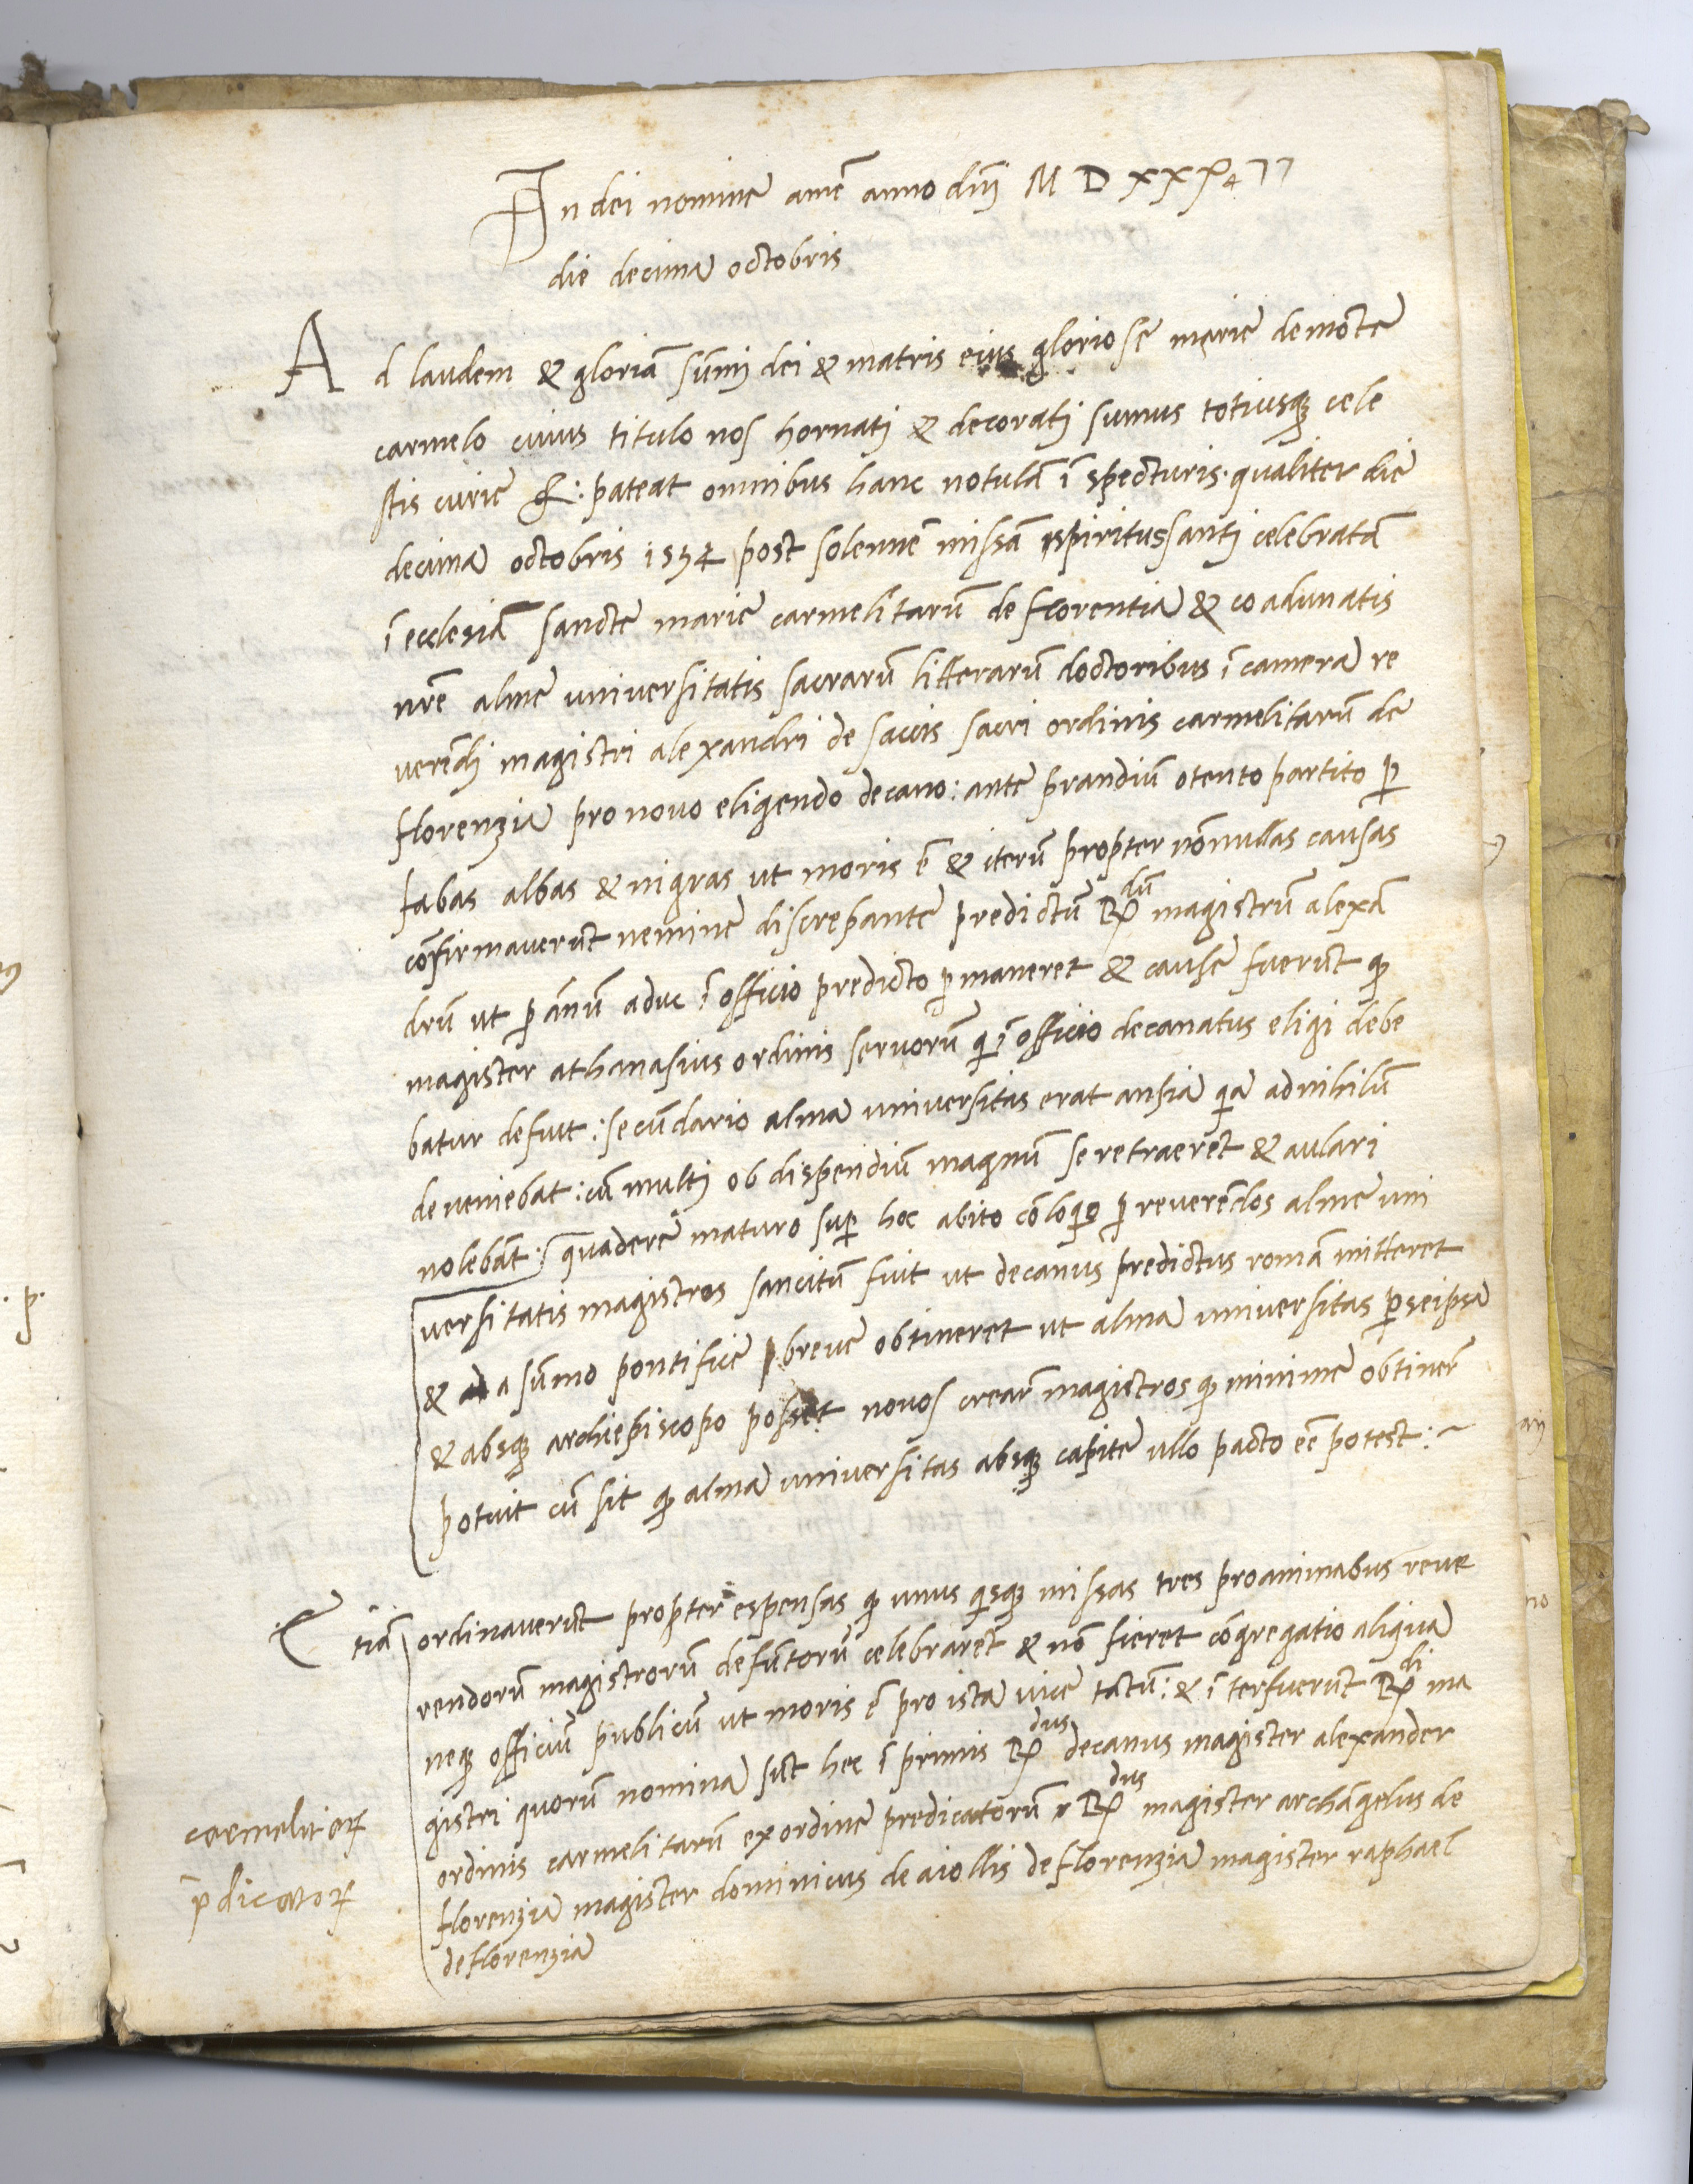 In dei nomine amē anno dnī M D XXX 4
die decima octobris
Ad laudem & gloriā sūmi dei & matris eius gloriose marie de mōte
carmelo cuius titulo nos hornati & decorati sumus totiusq; cele
stis curie &: pateat omnibus hanc notulā ī specturis. qualiter die
decima octobris 1534 post solennē missā spiritussanti celebratā
ī ecclesiā sancte marie carmelitarū de florentia & coadunatis
nr̄e alme universitatis sacrarū litterarū doctoribus ī camera re
verēdi magistri alexandri de saccis sacri ordinis carmelitarū de
florenzia pro novo eligendo decano: ante prandiū otento partito p̄
fabas albas & nigras ut moris ē & iterū propter nōnullas causas
cōfirmaverūt nemine discrepante predictū R dū magistrū alexā
drū ut p̄ ānū aduc ī officio predicto p̄maneret & cause fuerūt q;
magister athanasius ordinis servorū q ī officio decanatus eligi debe
batur defuit: secūdario alma universitas erat ansia qa ad nihilū
deveniebat: cū multi ob dispendiū magnū se retraerēt & aulari
nolebāt: quadere maturo sup̄ hoc abito cōloqio p̄ reverēdos alme uni
versitatis magistros sancitū fuit ut decanus predictus romā mitteret
& a sūmo pontifice breve obtineret ut alma universitas p̄ seipsa
& absq; archiepiscopo posset novos crear̄ magistros q; minime obtiner̄
potuit cū sit q; alma universitas absq; capite ullo pacto eē potest: ~
Etiā ordinaverūt propter espensas q; unus qisq; missas tres pro animabus reve
rendorū magistrorū defūtorū celebrarēt & nō fieret cōgregatio aliqua
neq; officiū publicū ut moris ē pro ista vice tātū: & ī terfuerūt R di ma
gistri quorū nomina sūt hec ī primis R dus decanus magister alexander
ordinis carmelitarū ex ordine predicatorū R dus magister archāgelus de
florenzia magister dominicus de aiollis de florenzia magister raphael
de florenzia
carmelitoꝝ
p̄dicatoꝝ